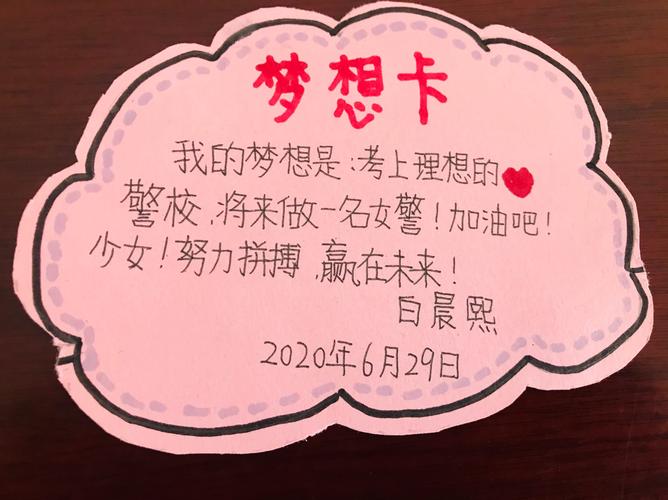 梦想卡
我的梦想是:考上理想的
警校,将来做一名女警!加油吧!
少女!努力拼搏,赢在未来!
白晨熙
2020年6月29日